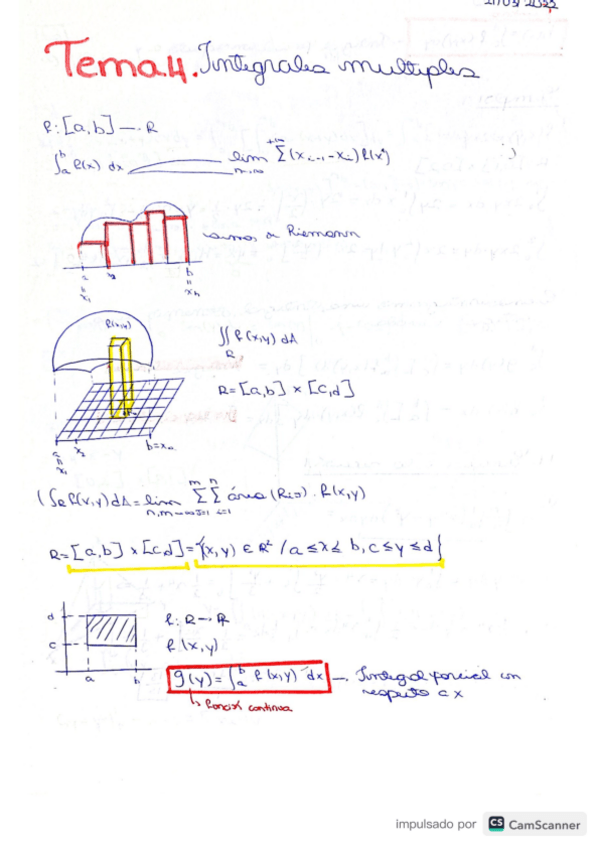 Tema 4. Integrales multiples
f: [a,b] → R
∫_a^b f(x) dx lim Σ (x_{i-1} - x_i) f(x)
n→∞
sumas de Riemann
a x₂ b
= =
x₁ xₙ
f(x,y)
∬_R f(x,y) dA
R = [a,b] × [c,d]
a x₂ b = xₙ
=
x₁
∫∫_R f(x,y) dA = lim Σ Σ área (R_{ij}) · f(x,y)
n,m→∞ j=1 i=1
R = [a,b] × [c,d] = {(x,y) ∈ R² / a ≤ x ≤ b, c ≤ y ≤ d}
d
c
a b
f: R → R
f(x,y)
g(y) = ∫_a^b f(x,y) dx → Integral parcial con
respecto a x
↳ función continua
impulsado por CS CamScanner